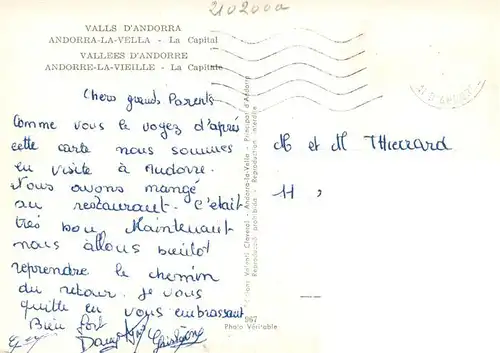 2102000
VALLS D'ANDORRA
ANDORRA-LA-VELLA - La Capital
VALLEES D'ANDORRE
ANDORRE-LA-VIEILLE - La Capitale
Chers grands Parents
Comme vous le voyez d'après
cette carte nous sommes
en visite à Andorre.
Nous avons mangé
au restaurant. C'était
très bon. Maintenant
nous allons bientôt
reprendre le chemin
du retour. Je vous
quitte en vous embrassant
Bien fort
M et M Thierrard
11 ,
Andorra-la-Vella - Principat d'Andorra
Reproducció prohibida - Reproduction interdite
967
Photo Véritable